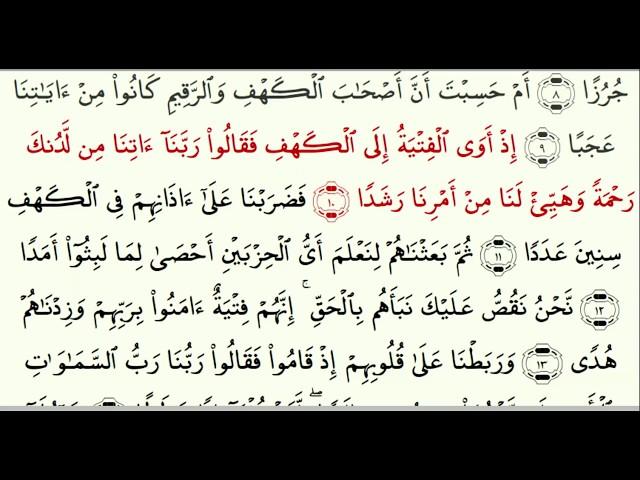 جُرُزًا ٨ أَمْ حَسِبْتَ أَنَّ أَصْحَٰبَ ٱلْكَهْفِ وَٱلرَّقِيمِ كَانُوا۟ مِنْ ءَايَٰتِنَا
عَجَبًا ٩ إِذْ أَوَى ٱلْفِتْيَةُ إِلَى ٱلْكَهْفِ فَقَالُوا۟ رَبَّنَآ ءَاتِنَا مِن لَّدُنكَ
رَحْمَةً وَهَيِّئْ لَنَا مِنْ أَمْرِنَا رَشَدًا ١٠ فَضَرَبْنَا عَلَىٰٓ ءَاذَانِهِمْ فِى ٱلْكَهْفِ
سِنِينَ عَدَدًا ١١ ثُمَّ بَعَثْنَٰهُمْ لِنَعْلَمَ أَىُّ ٱلْحِزْبَيْنِ أَحْصَىٰ لِمَا لَبِثُوٓا۟ أَمَدًا
١٢ نَّحْنُ نَقُصُّ عَلَيْكَ نَبَأَهُم بِٱلْحَقِّ ۚ إِنَّهُمْ فِتْيَةٌ ءَامَنُوا۟ بِرَبِّهِمْ وَزِدْنَٰهُمْ
هُدًى ١٣ وَرَبَطْنَا عَلَىٰ قُلُوبِهِمْ إِذْ قَامُوا۟ فَقَالُوا۟ رَبُّنَا رَبُّ ٱلسَّمَٰوَٰتِ